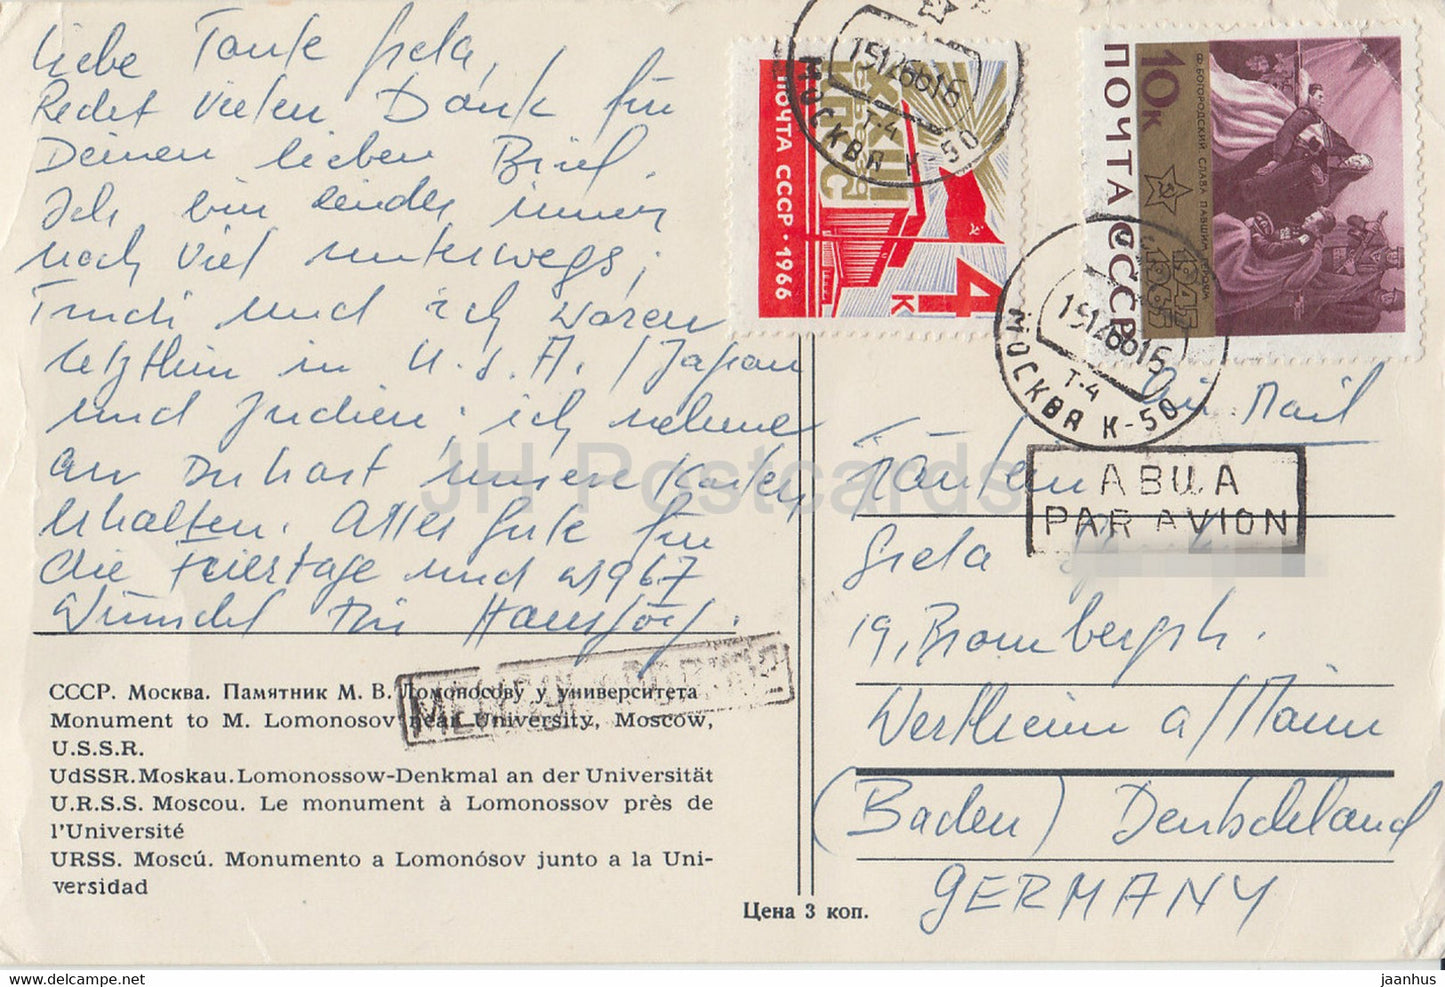 Liebe Tante Grela,
Redet vielen Dank für
Deinen lieben Brief.
Ich bin leider immer
noch viel unterwegs;
Trudi und ich waren
letzthin in U.S.A. / Japan
und Indien; ich nehme
an Du hast unsere Karten
erhalten. Alles Gute für
die Feiertage und 1967
Wünscht Dir Hansjörg.
СССР. Москва. Памятник М. В. Ломоносову у университета
Monument to M. Lomonosov near University, Moscow,
U.S.S.R.
UdSSR. Moskau. Lomonossow-Denkmal an der Universität
U.R.S.S. Moscou. Le monument à Lomonossov près de
l'Université
URSS. Moscú. Monumento a Lomonósov junto a la Uni-
versidad
Цена 3 коп.
XXIII
КПСС
ПОЧТА СССР • 1966
4 К
МОСКВА К-50
Т-4
10К
ПОЧТА СССР
Ф. БОГОРОДСКИЙ СЛАВА ПАВШИМ ГЕРОЯМ
1945
1965
МОСКВА К-50
Т-4
Air Mail
АВИА
PAR AVION
Fräulein
Grela
19, Brombergstr.
Wertheim a/Main
(Baden) Deutschland
GERMANY
JH Postcards
jaanhus